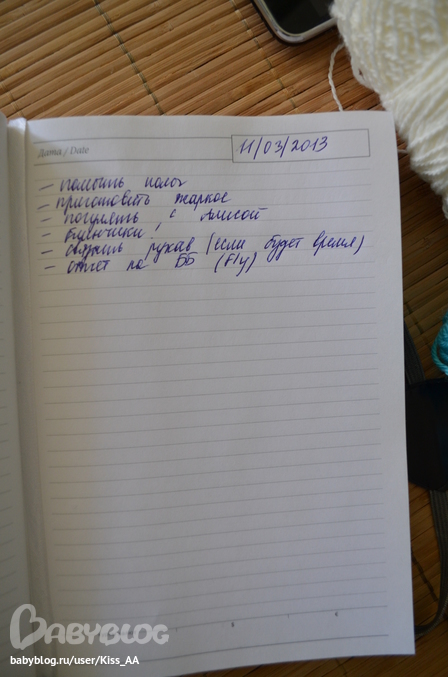 Дата / Date
11/03/2013
– помыть полы
– приготовить жаркое
– погулять с Алисой
– блинчики
– связать рукав (если будет время)
– отчет по ББ (Fly)
BABYBLOG
babyblog.ru/user/Kiss_AA